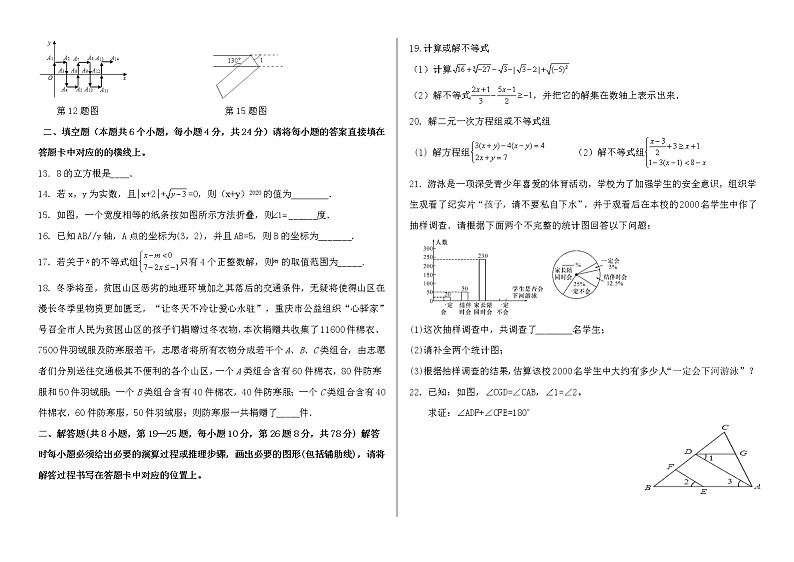 y
A1 A2 A7 A8 A13 A14
A3 A6 A9 A12
O x
A4 A5 A10 A11
130° 1
第12题图 第15题图
二、填空题（本题共6个小题，每小题4分，共24分）请将每小题的答案直接填在
答题卡中对应的的横线上。
13. 8的立方根是____.
14. 若x，y为实数，且|x+2|+√(y−3)=0，则（x+y）2020的值为_______.
15. 如图，一个宽度相等的纸条按如图所示方法折叠，则∠1=______度.
16. 已知AB//y轴，A点的坐标为(3, 2)，并且AB=5，则B的坐标为_______.
17. 若关于x的不等式组{x−m<0 7−2x≤−1只有4个正整数解，则m的取值范围为_____.
18. 冬季将至，贫困山区恶劣的地理环境加之其落后的交通条件，无疑将使得山区在
漫长冬季里物资更加匮乏，“让冬天不冷让爱心永驻”，重庆市公益组织“心驿家”
号召全市人民为贫困山区的孩子们捐赠过冬衣物，本次捐赠共收集了11600件棉衣、
7500件羽绒服及防寒服若干，志愿者将所有衣物分成若干个A、B、C类组合，由志愿
者们分别送往交通极其不便利的各个山区，一个A类组合含有60件棉衣，80件防寒
服和50件羽绒服；一个B类组合含有40件棉衣，40件防寒服；一个C类组合含有40
件棉衣，60件防寒服，50件羽绒服；则防寒服一共捐赠了_____件.
二、解答题(共8小题，第19—25题，每小题10分，第26题8分，共78分) 解答
时每小题必须给出必要的演算过程或推理步骤，画出必要的图形(包括辅助线)，请将
解答过程书写在答题卡中对应的位置上。
19.计算或解不等式
（1）计算√16+∛−27−√3−|√3−2|+√(−5)²
（2）解不等式(2x+1)/3−(5x−1)/2≥−1，并把它的解集在数轴上表示出来.
20. 解二元一次方程组或不等式组
(1) 解方程组{3(x+y)−4(x−y)=4 2x+y=7 （2）解不等式组{(x−3)/2+3≥x+1 1−3(x−1)<8−x
21. 游泳是一项深受青少年喜爱的体育活动，学校为了加强学生的安全意识，组织学
生观看了纪实片“孩子，请不要私自下水”，并于观看后在本校的2000名学生中作了
抽样调查．请根据下面两个不完整的统计图回答以下问题：
人数
300
250
200
150
100
50
0
20 50 230
一定会 结伴时会 家长陪同时会 一定不会
学生是否会下河游泳
家长陪同时会 __%
一定会 5%
结伴时会 12.5%
25% 一定不会
(1)这次抽样调查中，共调查了________名学生；
(2)请补全两个统计图；
(3)根据抽样调查的结果，估算该校2000名学生中大约有多少人“一定会下河游泳”？
22. 已知：如图，∠CGD=∠CAB，∠1=∠2。
求证：∠ADF+∠CFE=180°
C
D 1 G
F
2 3
B E A